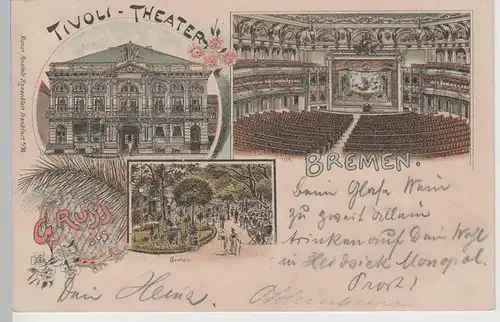 TIVOLI - THEATER
BREMEN.
GRUSS
aus
Garten.
beim Glase Wein
zu zweit allein
trinken auf Dein Wohl
in Heidsick Monopol.
Prost!
Dein Heinz
Kunst Anstalt Rosenblatt Frankfurt a/M.